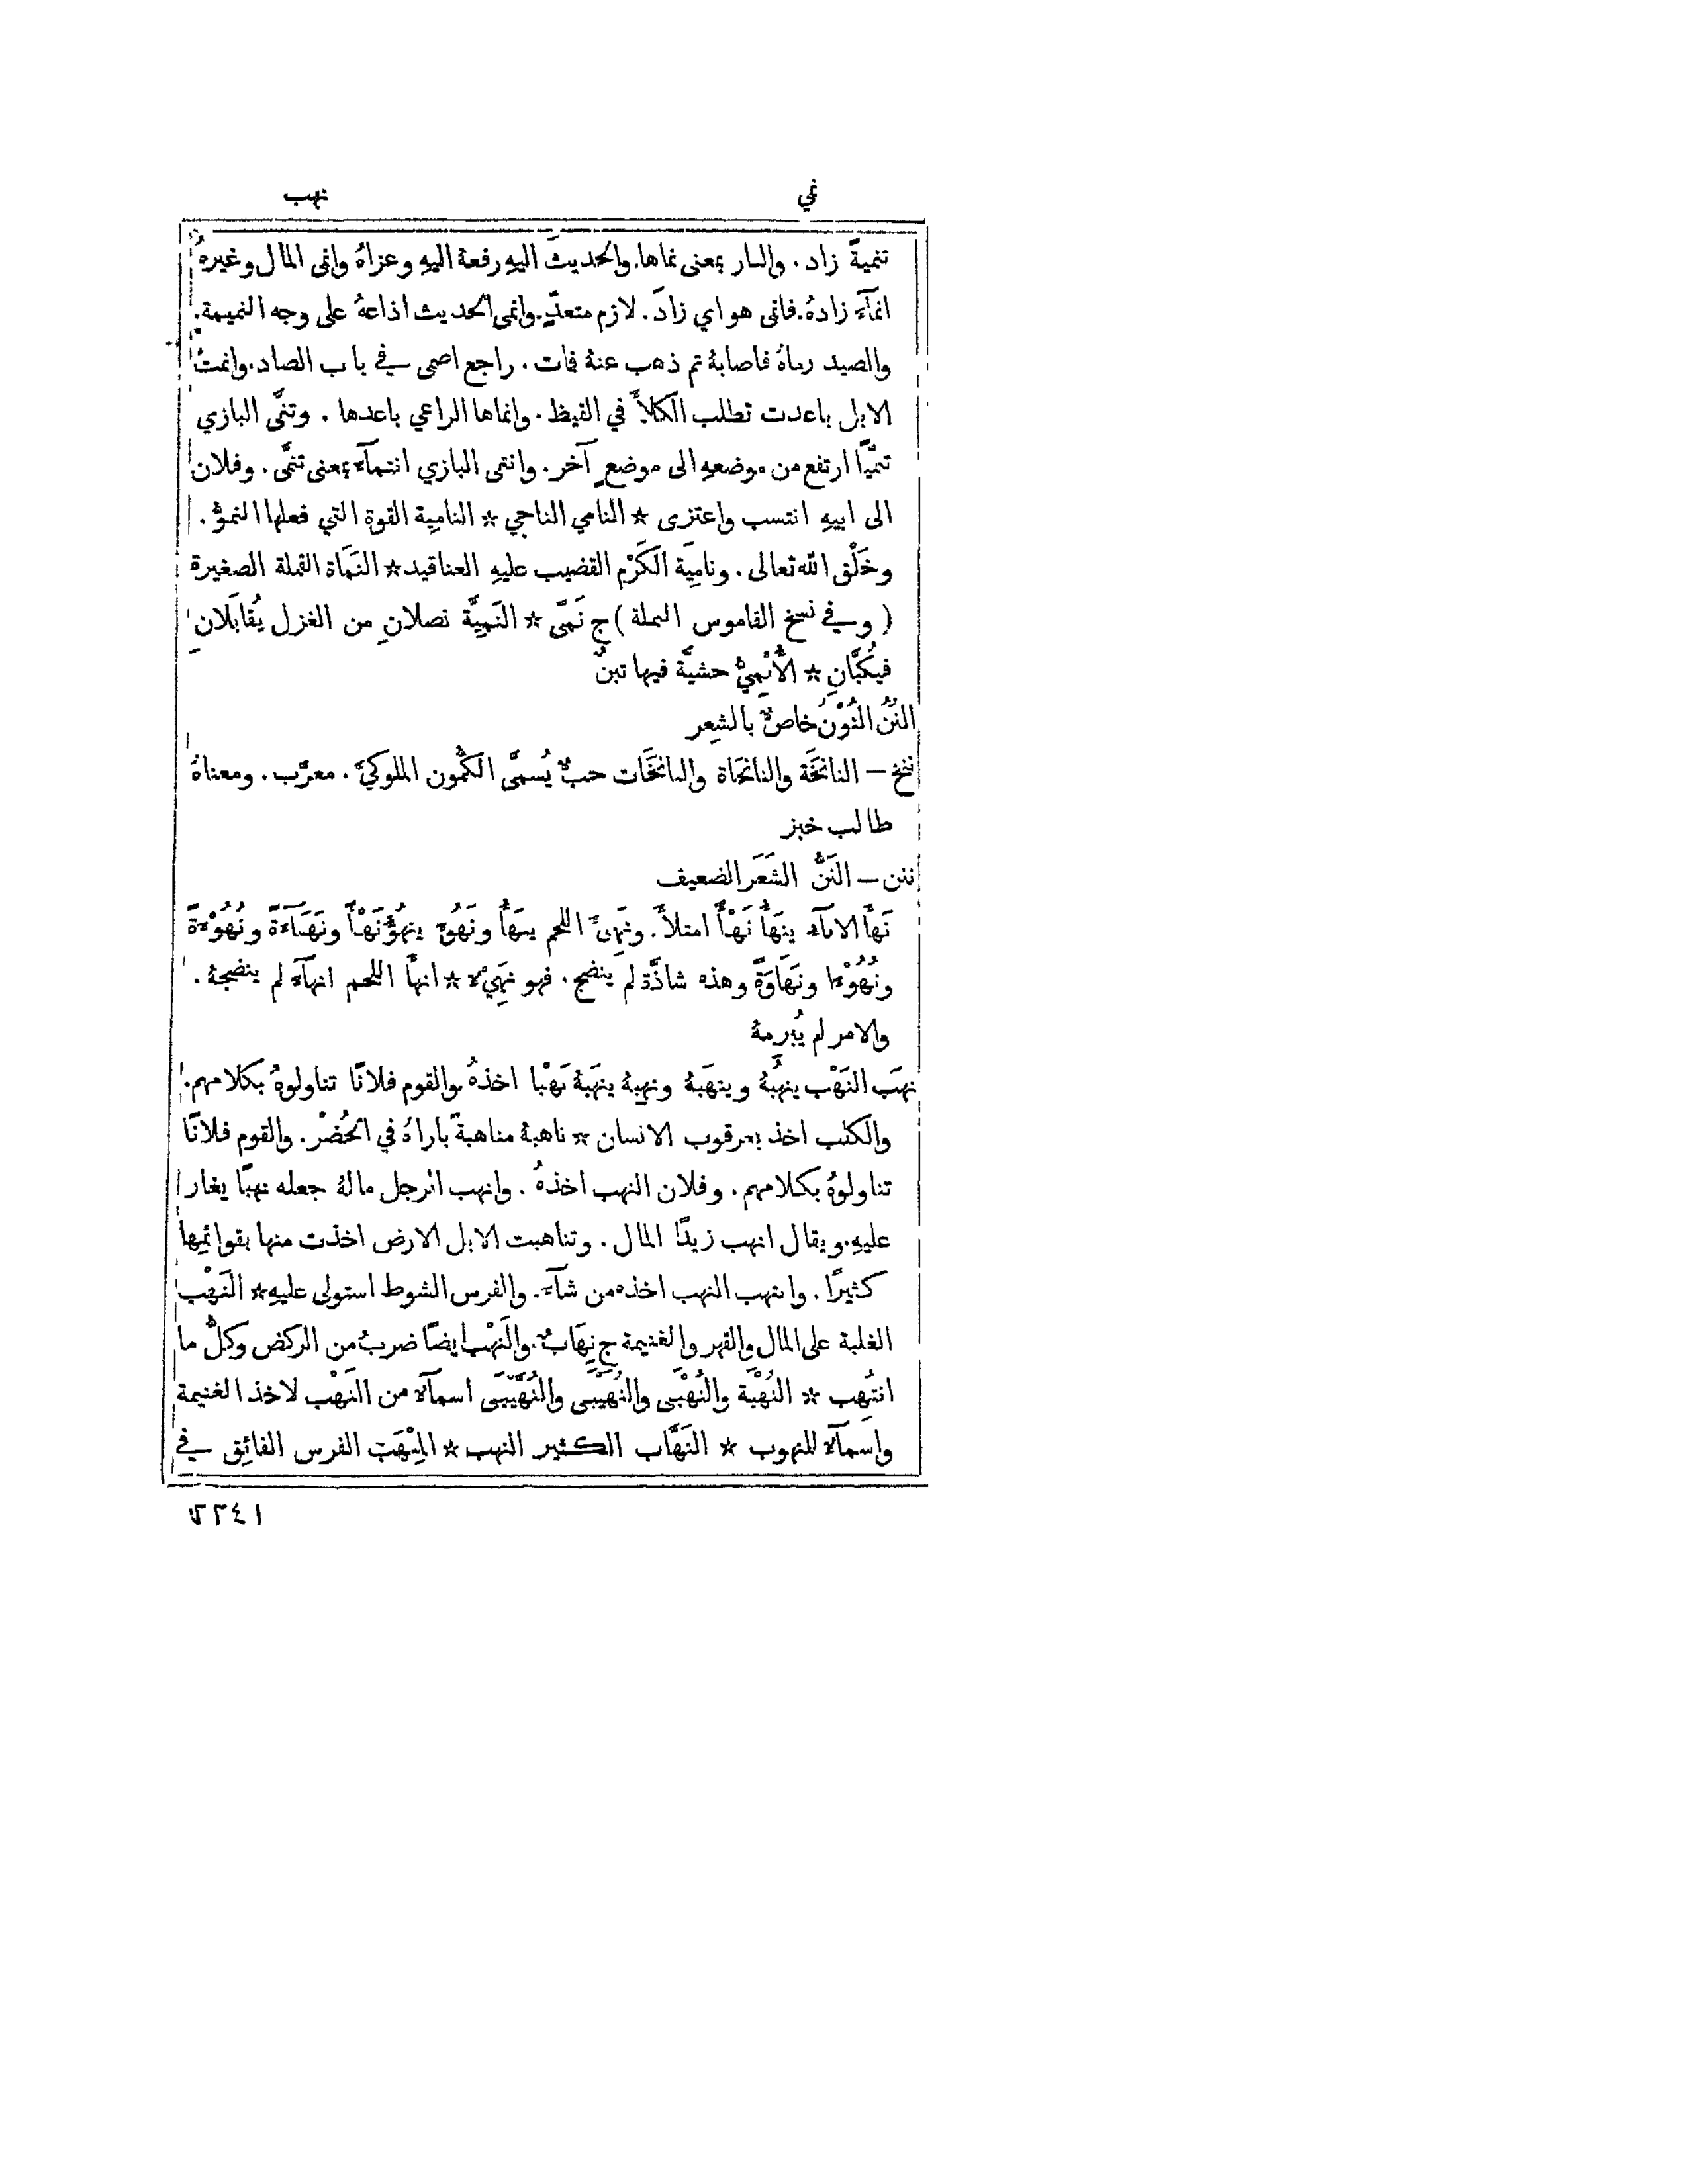 نمي نهب
تنميةً زاد. والنار بمعنى نماها. والحديثَ اليهِ رفعهُ اليهِ وعزاهُ وانمى المال وغيرهُ
انمآءً زادهُ. فانمى هو اي زادَ. لازم متعدٍّ. وانمى الحديث اذاعهُ على وجه النميمة.
والصيد رماهُ فاصابهُ ثم ذهب عنهُ فمات. راجع اصمى في باب الصاد. وانمتْ
الابل باعدت تطلب الكلأَ في القيظ. وانماها الراعي باعدها. وتنمَّى البازي
تنمّيًا ارتفع من موضعهِ الى موضعٍ آخر. وانتمى البازي انتمآءً بمعنى تنمَّى. وفلان
الى ابيهِ انتسب واعتزى ☆ النامي الناجي ☆ النامِية القوة التي فعلها النموُّ.
وخَلْق الله تعالى. ونامِيَة الكَرْم القضيب عليهِ العناقيد ☆ النَمَاة القملة الصغيرة
(وفي نسخ القاموس النملة) ج نَمَى ☆ النَمِيَّة نصلانِ من الغزل يُقابَلانِ
فيُكَبَّانِ ☆ الأُنْمِيُّ حشيَّة فيها تبنٌ
النُنُ النُوْنُ خاصٌّ بالشِعر
ننخ — النانخَة والنانخَاة والنانخَات حبٌّ يُسمَّى الكَمُّون الملوكيَّ. معرَّب. ومعناهُ
طالب خبز
ننن — النَنُّ الشَعَر الضعيف
نَهَأَ الانآءُ ينهَأُ نَهْأً امتلأَ. ونَهِئَ اللحم ينهَأُ ونَهُؤَ ينهُؤُ نَهْأً ونَهَآءَةً ونُهُوْءَةً
ونُهُوْءًا ونَهَاوَةً وهذه شاذَّة لم ينضج. فهو نَهِيْءٌ ☆ انهأَ اللحم انهآءً لم ينضجهُ.
والامر لم يُبرِمهُ
نهَب النَهْب ينهَبُهُ وينهُبهُ ونهِبهُ ينهَبهُ نَهْبًا اخذهُ. والقوم فلانًا تناولوهُ بكلامهم.
والكلب اخذ بعرقوب الانسان ☆ ناهبهُ مناهبةً باراهُ في الحُضْر. والقوم فلانًا
تناولوهُ بكلامهم. وفلان النهب اخذهُ. وانهب الرجل مالهُ جعله نهبًا يغار
عليهِ. ويقال انهب زيدًا المال. وتناهبت الابل الارض اخذت منها بقوائمها
كثيرًا. وانتهب النهب اخذه من شآءَ. والفرس الشوط استولى عليهِ ☆ النَهْب
الغلبة على المال والقهر والغنيمة ج نِهَابٌ. والنَهْب ايضًا ضربٌ من الركض وكلُّ ما
انتُهِب ☆ النُهْبَة والنُهْبَى والنُهَيْبَى والنُهَّيْبَى اسمآءٌ من النَهْب لاخذ الغنيمة
واسمآءٌ للمنهوب ☆ النَهَّاب الكثير النهب ☆ المِنْهَب الفرس الفائِق في
٢٢٤١